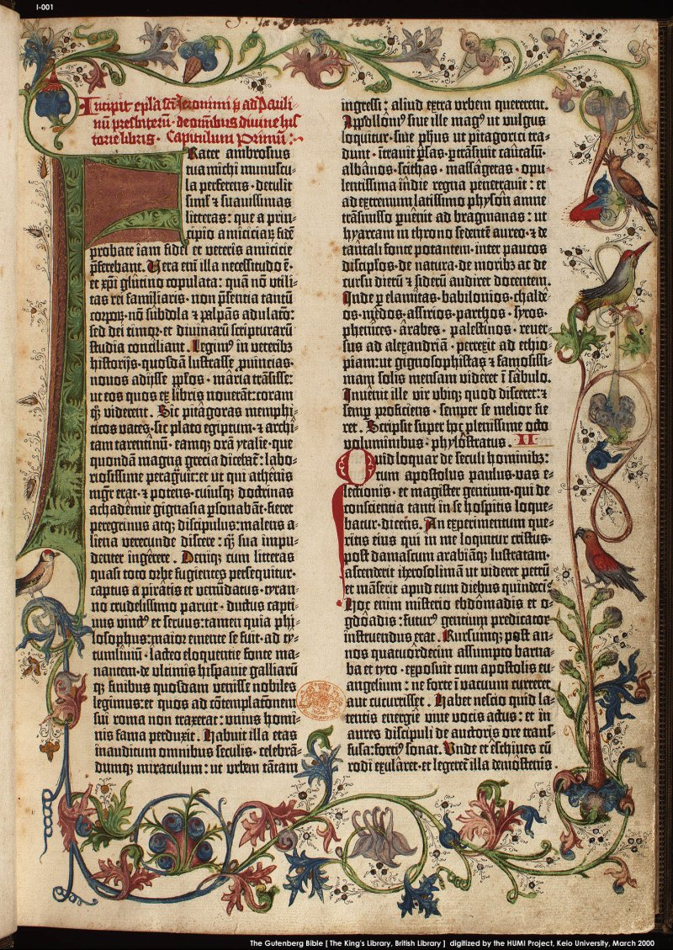 I-001
Incipit epl̃a sc̃i Jeronimi p̃ ad Pauli-
nũ presbiterũ · de om̃ibus divine his
torie libris · Capitulum Primũ:·
Frater ambrosius
tua michi munuscu-
la perferens · detulit
simł ⁊ suauissimas
litteras : que a prin-
cipio amiciciaꝝ fidẽ
probate iam fidei et veteris amicicie
p̃ferebant. Uera enĩ illa necessitudo ẽ ·
et xp̃i glutino copulata : quã nõ utili-
tas rei familiaris · non p̃sentia tantũ
corporꝝ · nõ subdola ⁊ palpãs adulacõ ·
sed dei timor · et diuinarũ scripturarũ
studia conciliant. Legimꝰ in veteribꝫ
historijs · quosdã lustrasse ꝓuincias ·
nouos adijsse pp̃los · maria trãsisse :
ut eos quos ex libris nouerãt : coram
qꝫ viderent. Sic pitagoras memphi-
ticos vates · sic plato egiptum · ⁊ archi-
tam tarentinũ · eamqꝫ orã ytalie · que
quondã magna grecia dicebat̃ : labo-
riosissime peragũit : et ut qui athenis
mgr̃ erat · ⁊ potens · cuiusqꝫ doctrinas
achademie gignasia p̃sonabãt · fieret
peregrinus atqꝫ discipulus : malens a-
liena verecunde discere : qꝫ sua impu-
denter ingerere. Deniqꝫ cum litteras
quasi toto orbe fugientes persequitur ·
captus a piratis et venũdatus · tyran-
no crudelissimo paruit · ductus capti-
uus vinctꝰ et seruus : tamen quia phi-
losophus : maior emente se fuit · ad ty-
tumliuiũ · lacteo eloquentie fonte ma-
nantem · de vltimis hispanie galliarũ
qꝫ finibus quosdam venisse nobiles
legimus : et quos ad cõtemplacõnem
sui roma non traxerat : vnius homi-
nis fama perduxit. Habuit illa etas
inauditum omnibus seculis · celebrã-
dumqꝫ miraculum : ut vrbem tãtam
ingressi : aliud extra vrbem quererent.
Appolloniꝰ siue ille magꝰ ut vulgus
loquitur · siue ph̃us ut pitagorici tra-
dunt · ĩtrauit p̃sas · p̃trãsiuit caucasũ ·
albãnos · scithas · massagetas · opu-
lentissima ĩndie regna penetrauit : et
ad extremum latissimo physõn amne
trãsmisso p̃uenit ad bragmanas : ut
hyarcam in throno sedentẽ aureo · ⁊ de
tãtali fonte potantem · inter paucos
discip̃los · de natura · de moribꝫ ac de
cursu dierũ ⁊ siderũ audiret docentem.
Inde p elamitas · babilonios · chalde
os · medos · assirios · parthos · syros ·
phenices · arabes · palestinos · reuer-
sus ad alexandriã · perrexit ad ethio-
piam : ut gignosophistas ⁊ famosissi-
mam solis mensam videret ĩ sabulo.
Inuenit ille vir vbiqꝫ quod disceret : ⁊
semꝑ proficiens · semper se melior fie
ret. Scripsit super hoc plenissime octo
voluminibus · phylostratus. II
Quid loquar de seculi hominibꝫ :
cum apostolus paulus · vas e-
lectionis · et magister gentium · qui de
conscientia tanti ĩ se hospitis loque-
batur · dicens. An experimentum que-
ritis eius qui in me loquitur cristus ·
post damascum arabiãqꝫ lustratam ·
ascenderit iherosolimã ut videret petrũ
et mãserit apud eum diebus quindeci ·
Hoc enim misterio ebdõmadis et o-
gdõadis : futurꝰ gentium predicator
instruendus erat. Rursumqꝫ post an-
nos quatuordecim assumpto barna-
ba et tyto · exposuit cum apostolis eu-
angelium : ne forte ĩ vacuum curreret
aut cucurrisset. Habet nescio quid la-
tentis energie viue vocis actus : et in
aures discipuli de auctoris ore trans-
fusa : fortiꝰ sonat. Vnde et eschines cũ
rodi exularet · et legeret̃ illa demostenis
The Gutenberg Bible [ The King's Library, British Library ] digitized by the HUMI Project, Keio University, March 2000